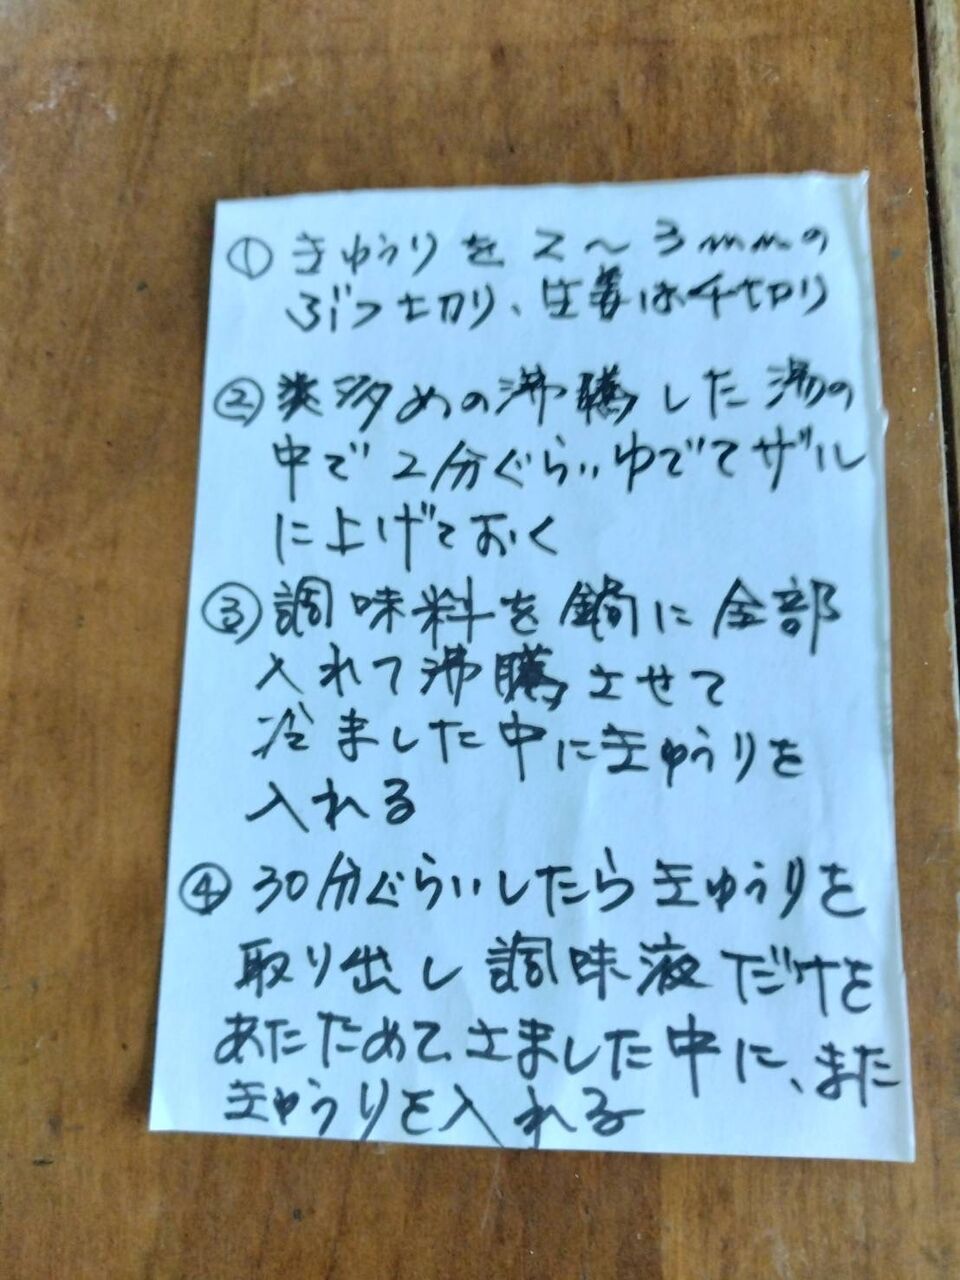 ① きゅうりを2〜3mmの
ぶつ切り、生姜は千切り
② 多めの沸騰した湯の
中で2分ぐらいゆでてザル
に上げておく
③ 調味料を鍋に全部
入れて沸騰させて
冷ました中にきゅうりを
入れる
④ 30分ぐらいしたらきゅうりを
取り出し調味液だけを
あたためて、さました中に、また
きゅうりを入れる